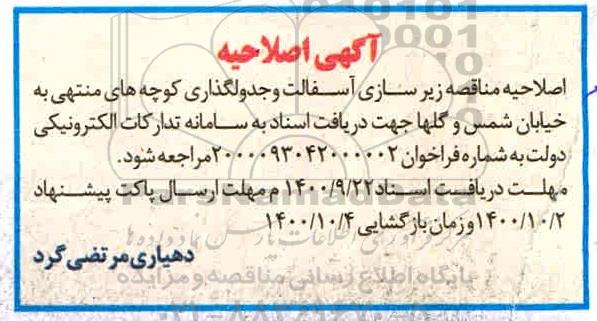 آگهی اصلاحیه
اصلاحیه مناقصه زیر سازی آسفالت وجدولگذاری کوچه های منتهی به
خیابان شمس و گلها جهت دریافت اسناد به سامانه تدارکات الکترونیکی
دولت به شماره فراخوان ۲۰۰۰۰۹۳۰۴۲۰۰۰۰۰۲مراجعه شود.
مهلت دریافت اسناد۱۴۰۰/۹/۲۲ م مهلت ارسال پاکت پیشنهاد
۱۴۰۰/۱۰/۲وزمان بازگشایی ۱۴۰۰/۱۰/۴
دهیاری مرتضی گرد
ParsNamadData
پایگاه اطلاع رسانی مناقصه و مزایده